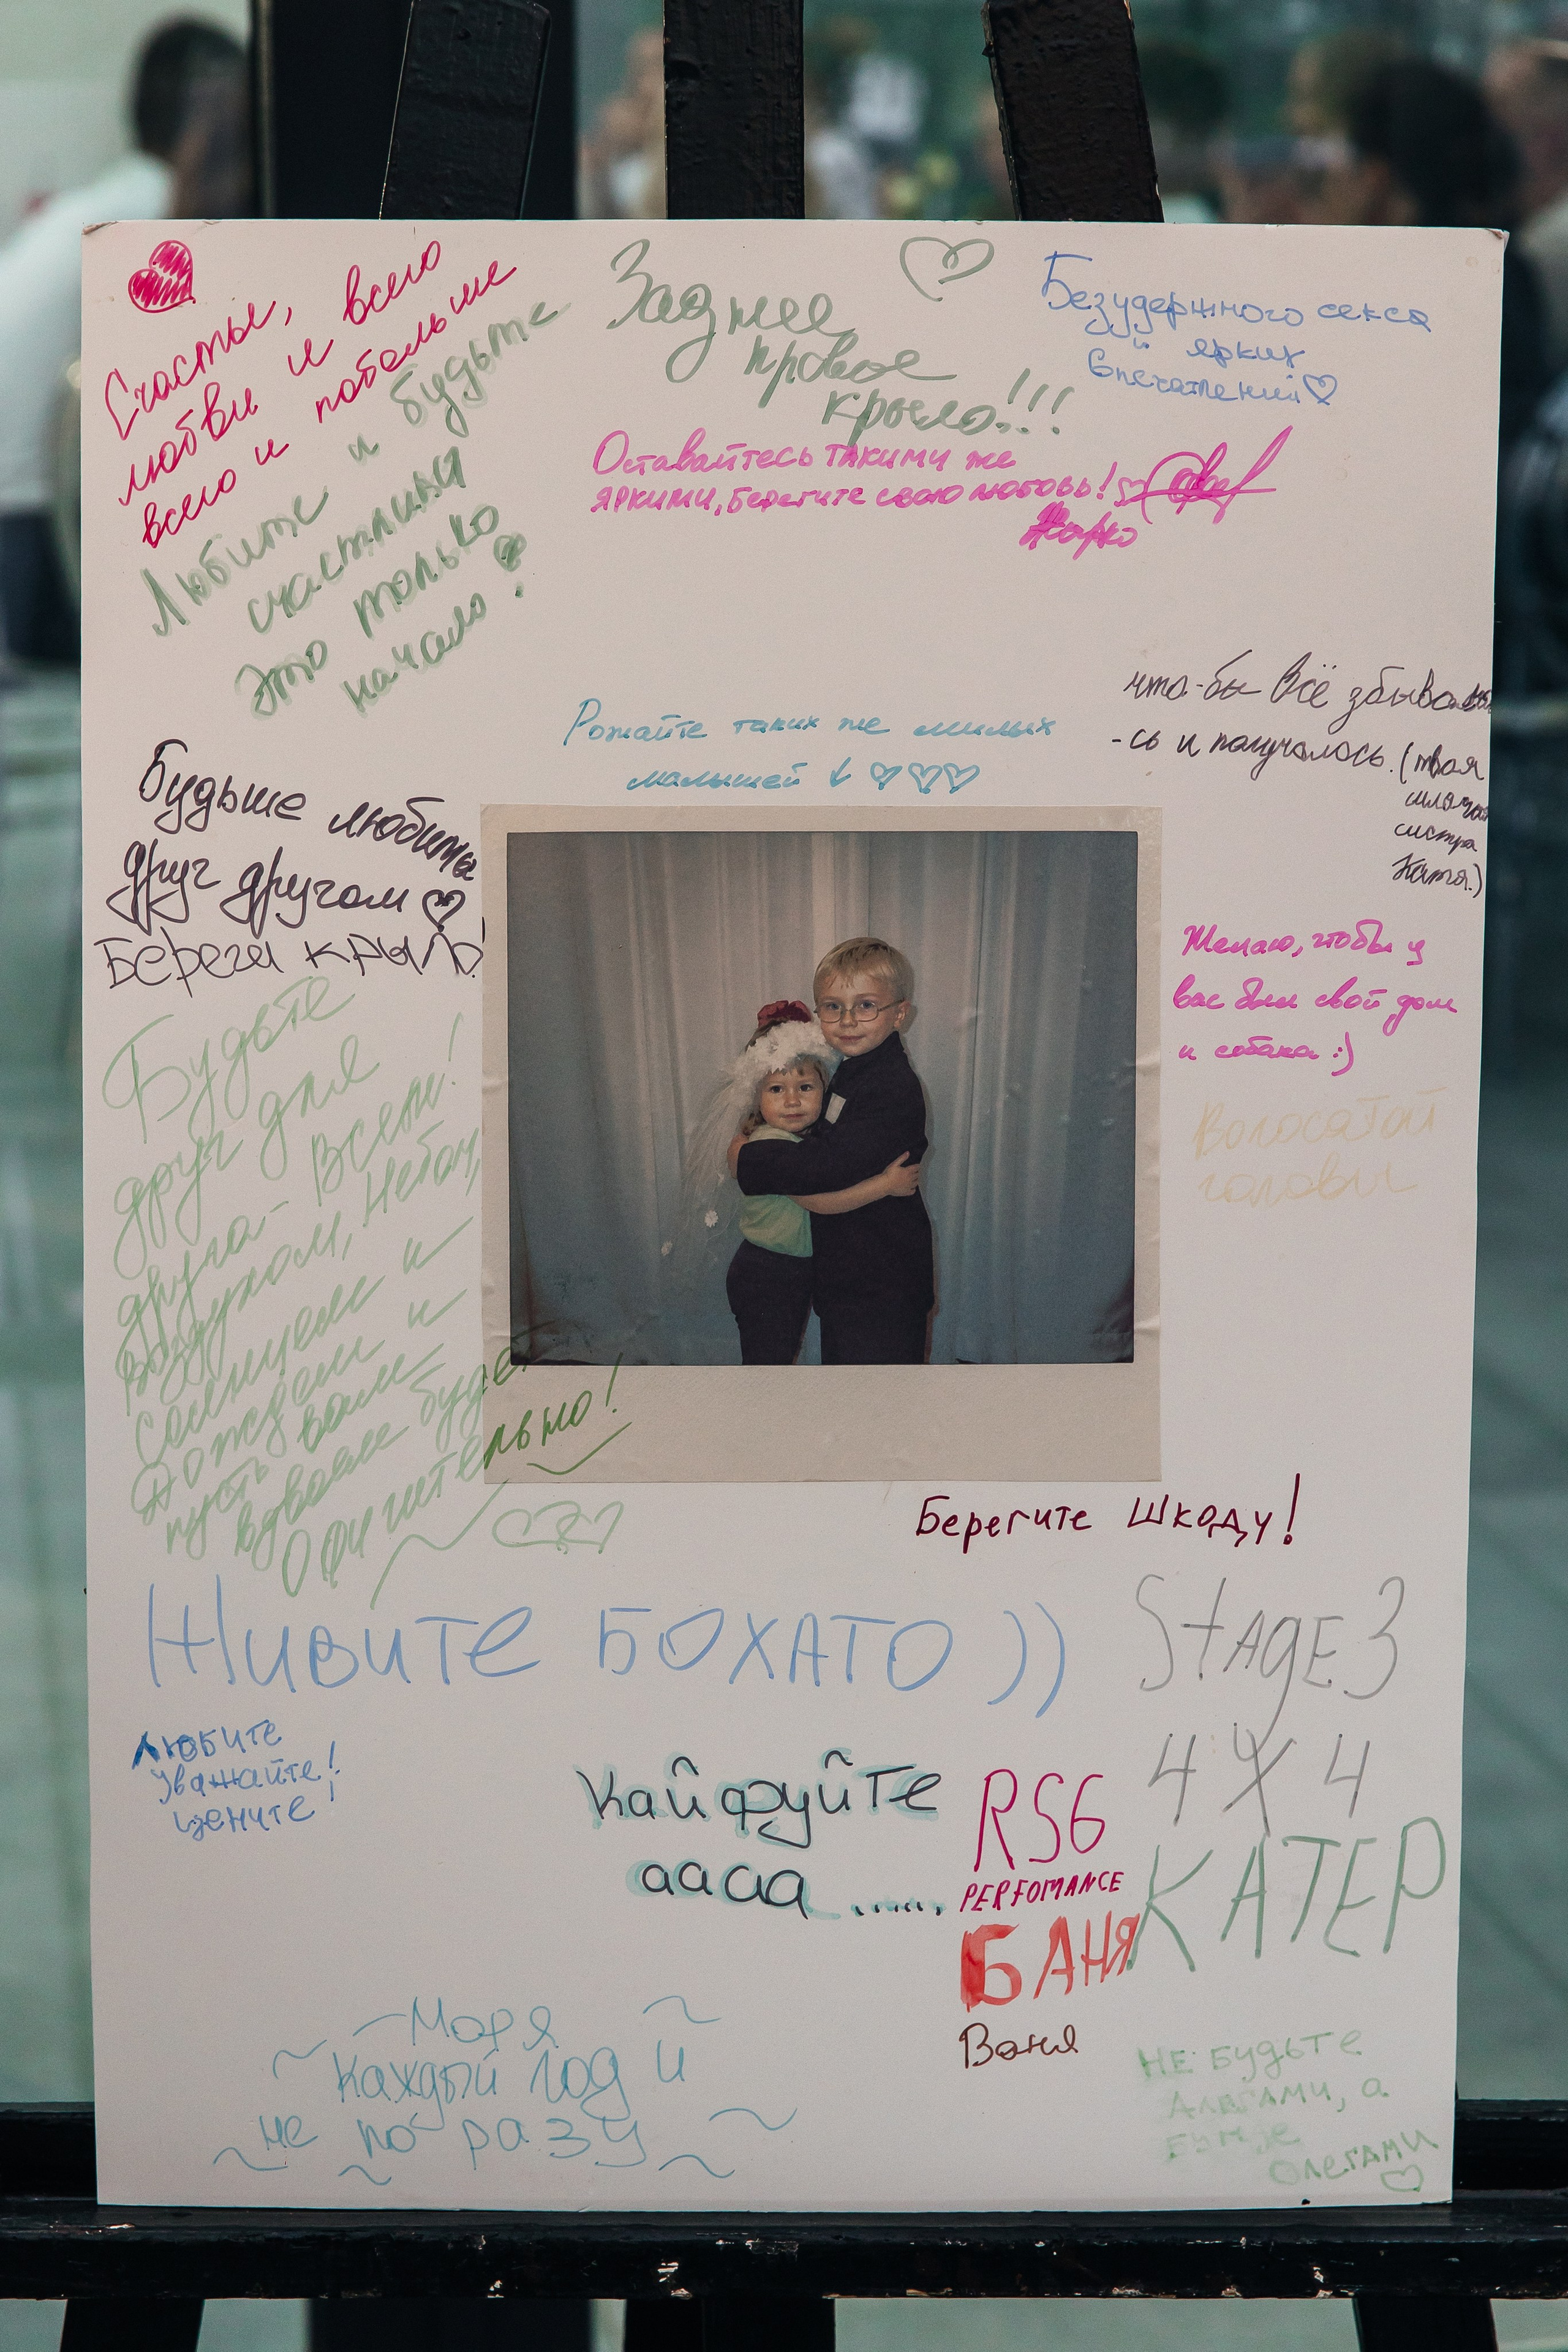 Счастья,
любви и всего
всего и побольше
Любите и будьте
счастливы
это только
начало!
Заднее
правое
крыло!!!
Безудержного секса
и ярких
впечатлений
Оставайтесь такими же
яркими, берегите свою любовь!
Жарко
Рожайте таких же милых
малышей ↓
что-бы всё збывало
-сь и получалось. (твоя
систра
Катя.)
Будьте любимы
друг другом
Береги крыло!
Желаю, чтобы у
вас был свой дом
и собака :)
Волосатой
головы
Будьте
друг для
друга - Всем!
Воздухом, Небом,
Солнцем и
Дождем и
пусть вам
вдвоем будет
Офигительно!
Берегите Шкоду!
Живите БОХАТО ))
Stage 3
4X4
КАТЕР
Любите
Уважайте!
Цените!
Кайфуйте
аааа ......
RS6
PERFOMANCE
БАНЯ
Ваня
~ Моря ~
~ Каждый год и
~ не по разу ~
НЕ БУДЬТЕ
АЛЕГАМИ, а
БУДЬТЕ
ОЛЕГАМИ